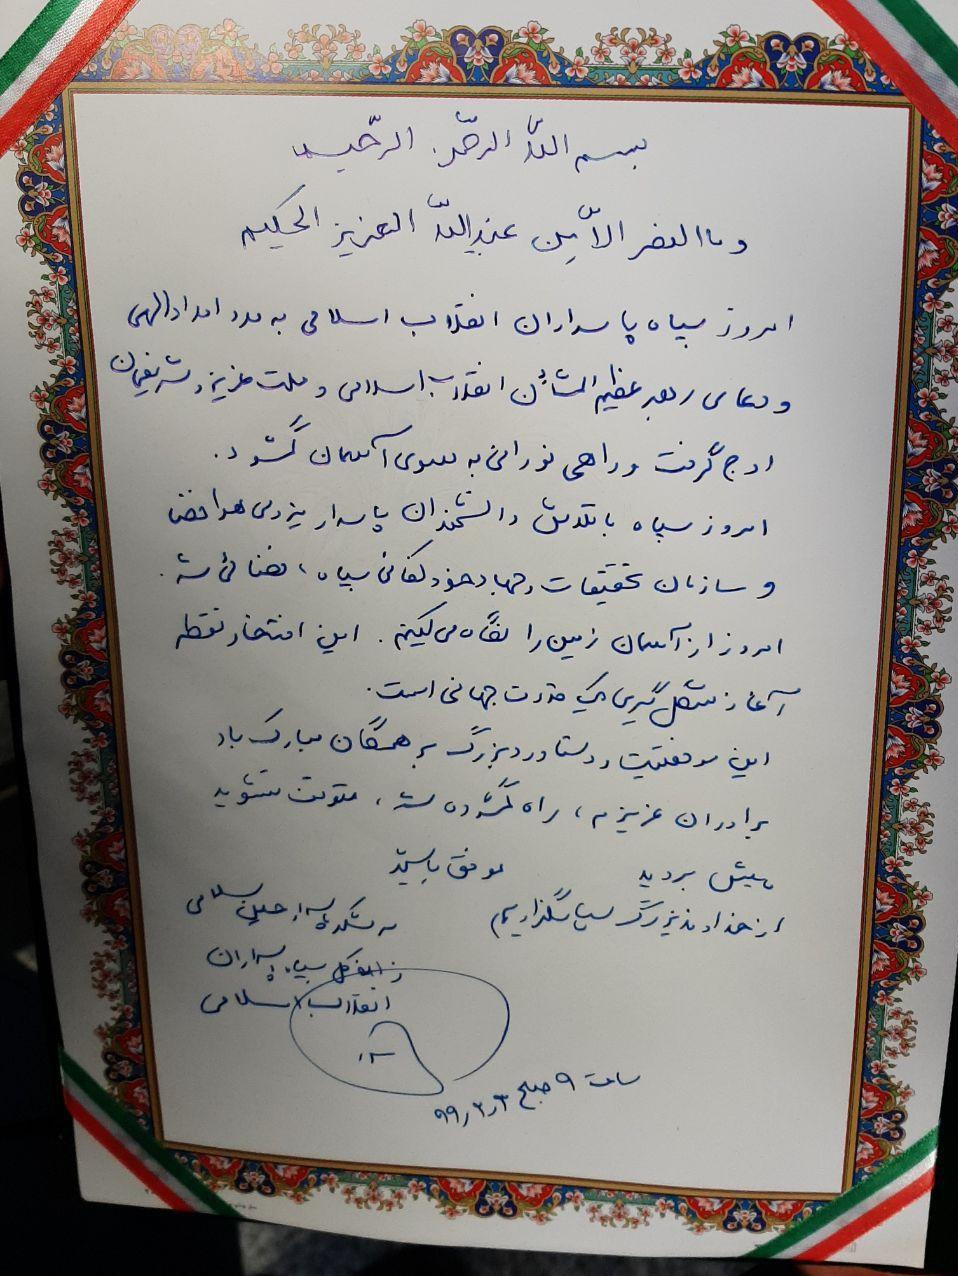 بسم اللّه الرحمن الرحیم
و ما النصر الا من عند اللّه العزیز الحکیم
امروز سپاه پاسداران انقلاب اسلامی به مدد امداد الهی
و دعای رهبر عظیم الشأن انقلاب اسلامی و ملت عزیز و شریفمان
اوج گرفت و راهی نورانی به سوی آسمان گشود.
امروز سپاه با تلاش دانشمندان پاسدار نیروی هوا فضا
و سازمان تحقیقات و جهاد خودکفائی سپاه، فضائی شد.
امروز از آسمان زمین را نگاه می‌کنیم. این افتخار نقطه
آغاز شکل گیری یک قدرت جهانی است.
این موفقیت و دستاورد بزرگ بر همگان مبارک باد
برادران عزیزم، راه گشوده شد، متوقف نشوید
پیش بروید موفق باشید
از خداوند بزرگ سپاسگزاریم
سرلشکر پاسدار حسین سلامی
فرمانده کل سپاه پاسداران
انقلاب اسلامی
ساعت ۹ صبح ۹۹٫۲٫۳